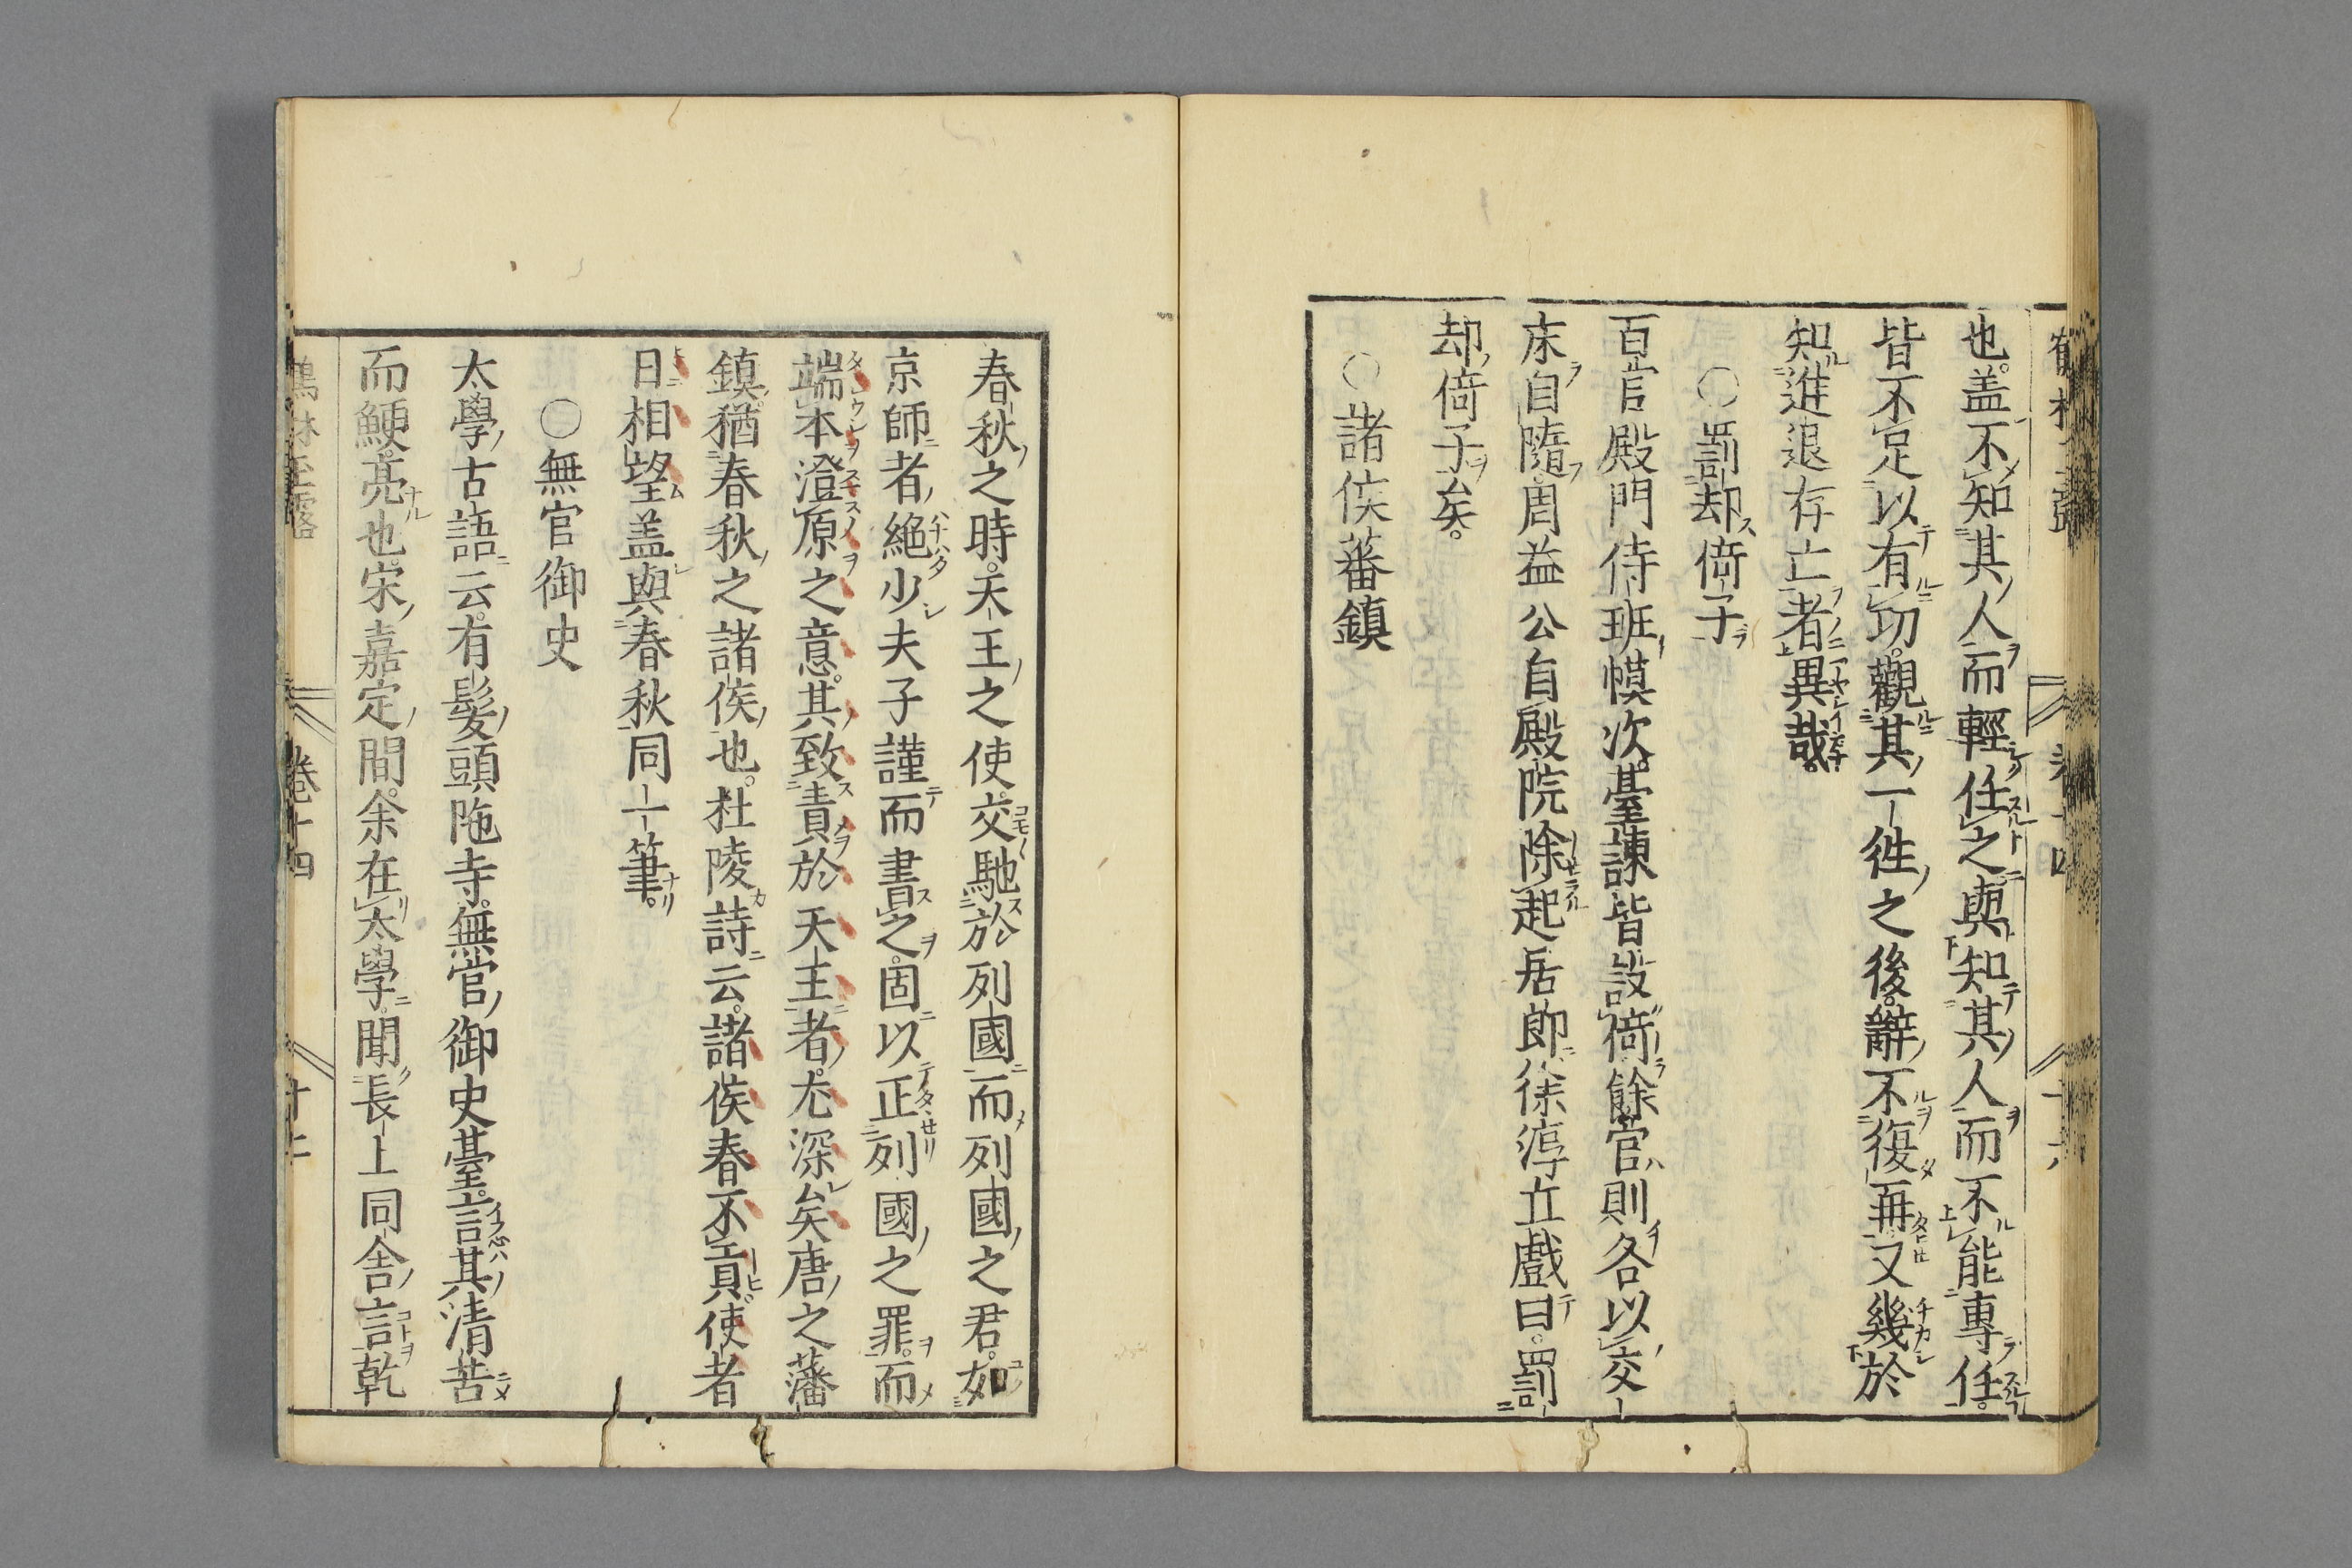 也。盖不知其人而輕任之與知其人而不能專任。
皆不足以有功。觀其一徃之後。辭不復再又幾於
知進退存亡者異哉。
○罰却倚子
百官殿門侍班幙次。臺諫皆設倚餘官則各以交
床自隨。周益公自殿院除起居郎徐淳立戲曰。罰
却倚子矣。
○諸侯蕃鎮
春秋之時。天王之使交馳於列國而列國之君。如
京師者絕少夫子謹而書之。固以正列國之罪。而
端本澄原之意。其致責於天王者。尤深矣唐之藩
鎮猶春秋之諸侯也。杜陵詩云。諸侯春不貢。使者
日相望盖與春秋同一筆。
○無官御史
太學古語云。有髮頭陁寺。無官御史臺。言其清苦
而鯁亮也。宋嘉定間。余在太學。聞長上同舎言乾
鶴林玉露
卷十四